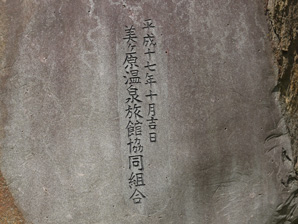 平成十七年十月吉日
美ヶ原温泉旅館協同組合